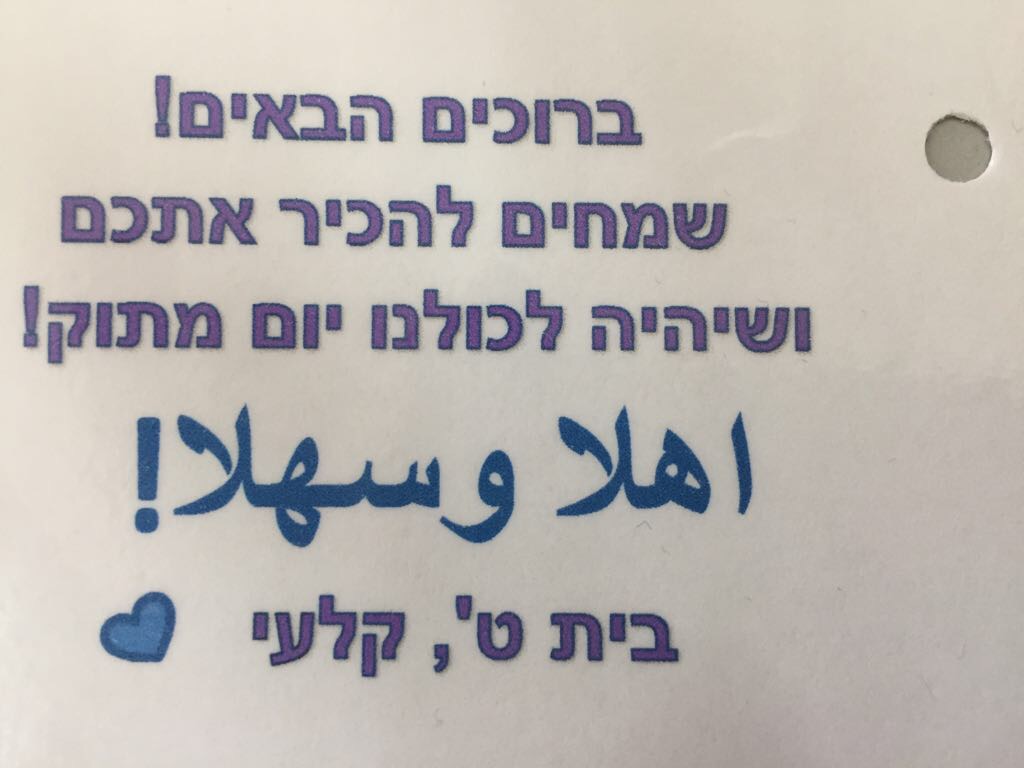 ברוכים הבאים!
שמחים להכיר אתכם
ושיהיה לכולנו יום מתוק!
اهلا وسهلا!
בית ט', קלעי